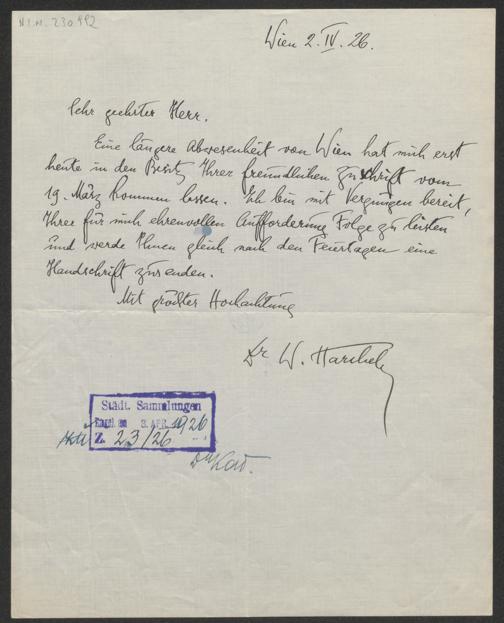 H.I.N. 230492
Wien 2. IV. 26.
Sehr geehrter Herr.
Eine längere Abwesenheit von Wien hat mich erst
heute in den Besitz Ihrer freundlichen Zuschrift vom
19. März kommen lassen. Ich bin mit Vergnügen bereit,
Ihrer für mich ehrenvollen Aufforderung Folge zu leisten
und werde Ihnen gleich nach den Feiertagen eine
Handschrift zusenden.
Mit größter Hochachtung
Dr W.
Städt. Sammlungen
Eingel. am 3. APR. 1926
Z. 23/26